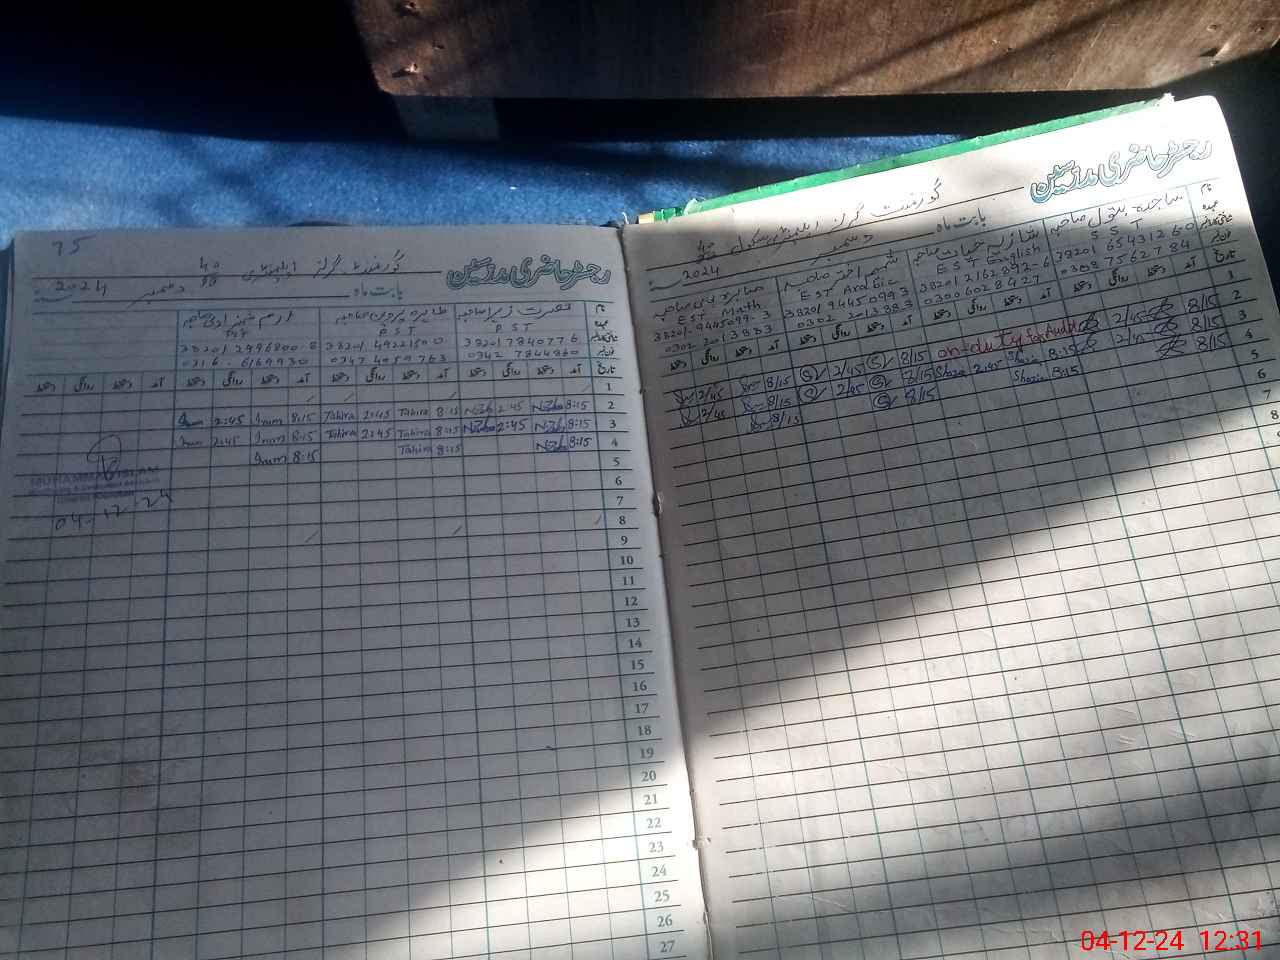 رجسٹر حاضری مدرسین
گورنمنٹ گرلز ایلیمنٹری سکول
بابت ماہ دسمبر 2024
نام ساجدہ بتول صاحبہ شازیہ صاحبہ شمیم اختر صاحبہ
عہدہ S S T EST English EST Arabic EST Math
38201 6543126 0 38201 2162892-6 38201 9445099 3 38201-9445099-3
0308 7562784 03006028427 0302 2013883 0302 2013883
تاریخ آمد دستخط روانگی دستخط آمد دستخط روانگی دستخط آمد دستخط روانگی دستخط
1
2 8/15 2/45 on-duty 8/15 2/45 8/15 2/45
3 8/15 2/45 Shazia 8:15 Shazia 2:45 8/15 2/45 8/15 2/45
4 8/15 Shazia 8:15 8/15 8/15
5
6
7
8
75
رجسٹر حاضری مدرسین
گورنمنٹ گرلز ایلیمنٹری
بابت ماہ دسمبر 2024
نام نصرت زہرا صاحبہ طاہرہ پروین صاحبہ ارم صاحبہ
عہدہ P S T P S T
38201 784077 6 38201 4922150 0 38201 2996800-8
0342 7844860 0347 4059763 0316 6169930
تاریخ آمد دستخط روانگی دستخط آمد دستخط روانگی دستخط آمد دستخط روانگی دستخط آمد دستخط روانگی دستخط
1
2 8:15 2:45 8:15 Tahira 2:45 Tahira 8:15 Irum 2:45 Irum
3 8:15 2:45 8:15 Tahira 2:45 Tahira 8:15 Irum 2:45 Irum
4 8:15 8:15 Tahira 8:15 Irum
5
MUHAMMAD ISLAM
6
04-12-24
7
8
9
10
11
12
13
14
15
16
17
18
19
20
21
22
23
24
25
26
27
04-12-24 12:31